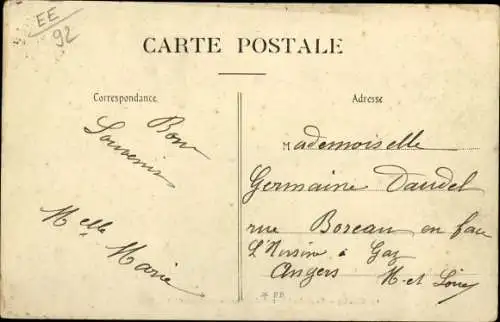 EE
92
CARTE POSTALE
Correspondance
Adresse
Bon
Souvenir
Melle Marie
Mademoiselle
Germaine Daudel
rue Boreau en face
L'Usine à Gaz
Angers M. et Loire